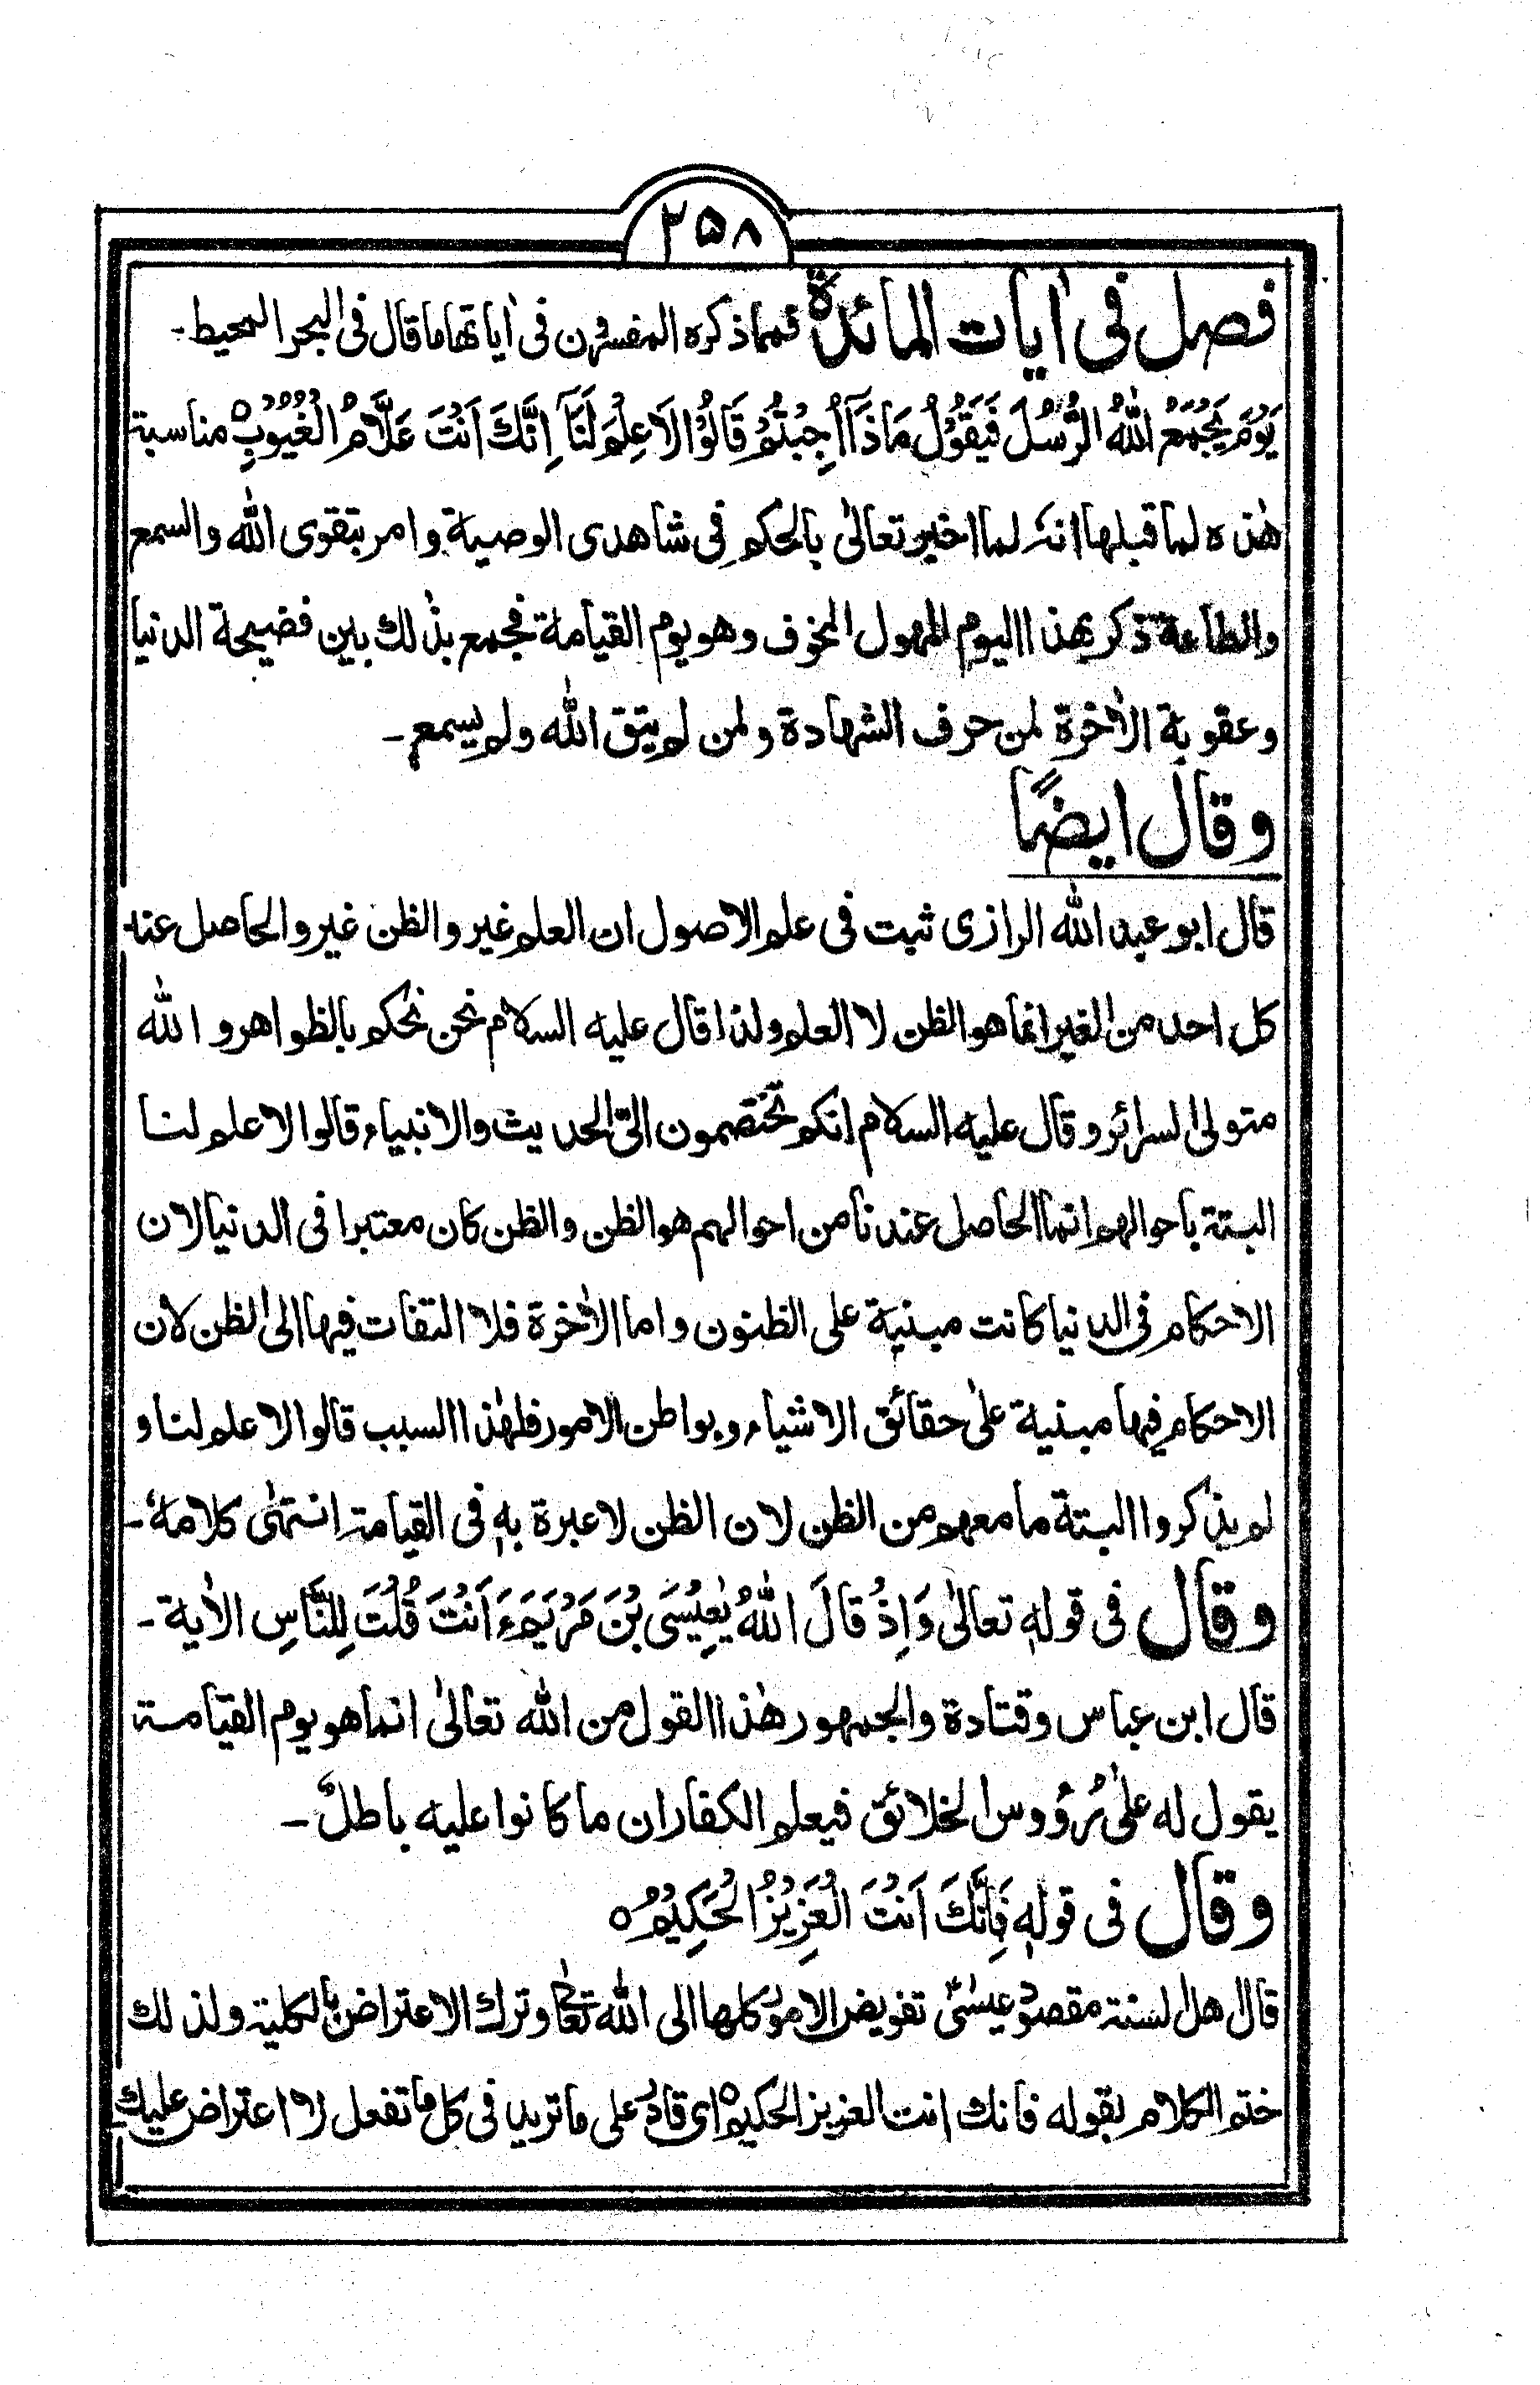 ۲۵۸
فصل فی اٰیات المائدة فمما ذکره المفسرون فی اٰیاتها ما قال فی البحر المحیط۔
یَوْمَ یَجْمَعُ اللّٰهُ الرُّسُلَ فَیَقُوْلُ مَاذَآ اُجِبْتُمْ قَالُوْا لَا عِلْمَ لَنَآ اِنَّكَ اَنْتَ عَلَّامُ الْغُیُوْبِ ٥ مناسبة
هٰذه لما قبلها انهٗ لما اخبر تعالیٰ بالحکم فی شاهدی الوصیة وامر بتقوی اللّٰه والسمع
والطاعة ذکر بهذا الیوم المهول المخوف وهو یوم القیامة فجمع بذٰلك بین فضیحة الدنیا
وعقوبة الاٰخرة لمن حرف الشهادة ولمن لم یتق اللّٰه ولم یسمع۔
وقال ایضًا
قال ابو عبد اللّٰه الرازی ثبت فی علم الاصول ان العلم غیر والظن غیر والحاصل عند
کل احد من الغیر انما هو الظن لا العلم ولذا قال علیه السلام نحن نحکم بالظواهر واللّٰه
متولی السرائر وقال علیه السلام انکم تختصمون الیّ الحدیث والانبیاء قالوا لا علم لنا
البتة باحوالهم انما الحاصل عندنا من احوالهم هو الظن والظن کان معتبرا فی الدنیا لان
الاحکام فی الدنیا کانت مبنیة علی الظنون واما الاٰخرة فلا التفات فیها الی الظن لان
الاحکام فیها مبنیة علیٰ حقائق الاشیاء وبواطن الامور فلهٰذا السبب قالوا لا علم لنا و
لم یذکروا البتة ما معهم من الظن لان الظن لا عبرة بهٖ فی القیامة انتهیٰ کلامهٗ۔
وقال فی قولهٖ تعالیٰ وَاِذْ قَالَ اللّٰهُ یٰعِیْسَی بْنَ مَرْیَمَ ءَاَنْتَ قُلْتَ لِلنَّاسِ الاٰیة۔
قال ابن عباس وقتادة والجمهور هٰذا القول من اللّٰه تعالیٰ انما هو یوم القیامة
یقول له علیٰ رُؤوس الخلائق فیعلم الکفار ان ما کانوا علیه باطلٌ۔
وقال فی قولهٖ فَاِنَّكَ اَنْتَ الْعَزِیْزُ الْحَکِیْمُ ٥
قال اهل السنة مقصود عیسیٰؑ تفویض الامور کلها الی اللّٰه تعالیٰ وترك الاعتراض بالکلیة ولذلك
ختم الکلام بقوله فانك انت العزیز الحکیم ٥ ای قادر علی ما ترید فی کل ما تفعل لا اعتراض علیك